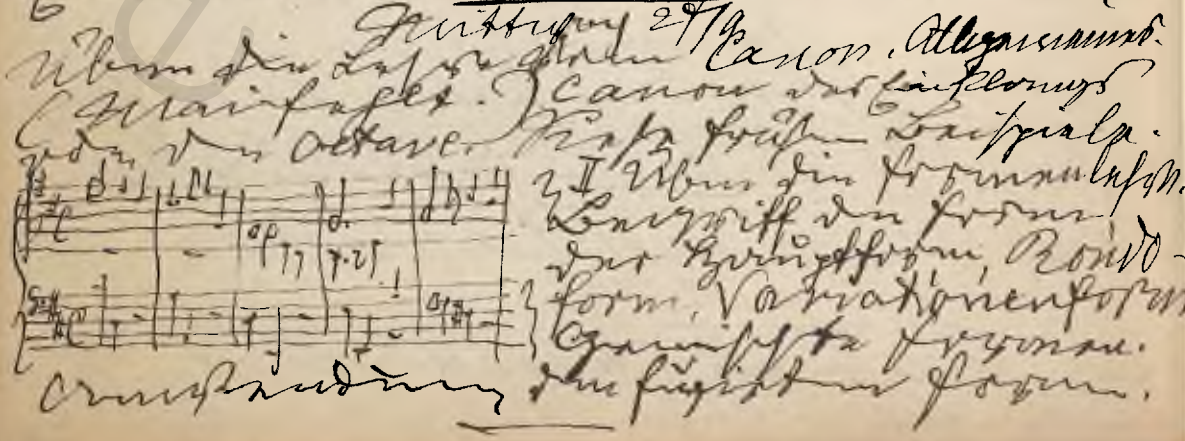 6
27/9
Über die Lehre vom Canon. Allgemeines.
Canon des Einklangs
oder der Octave. Siehe frühere Beispiele.
II Über die Formenlehre.
Begriff der Form,
der Hauptform, Rondo-
form, Variationenform
Gemischte Formen.
der fugirten Form.